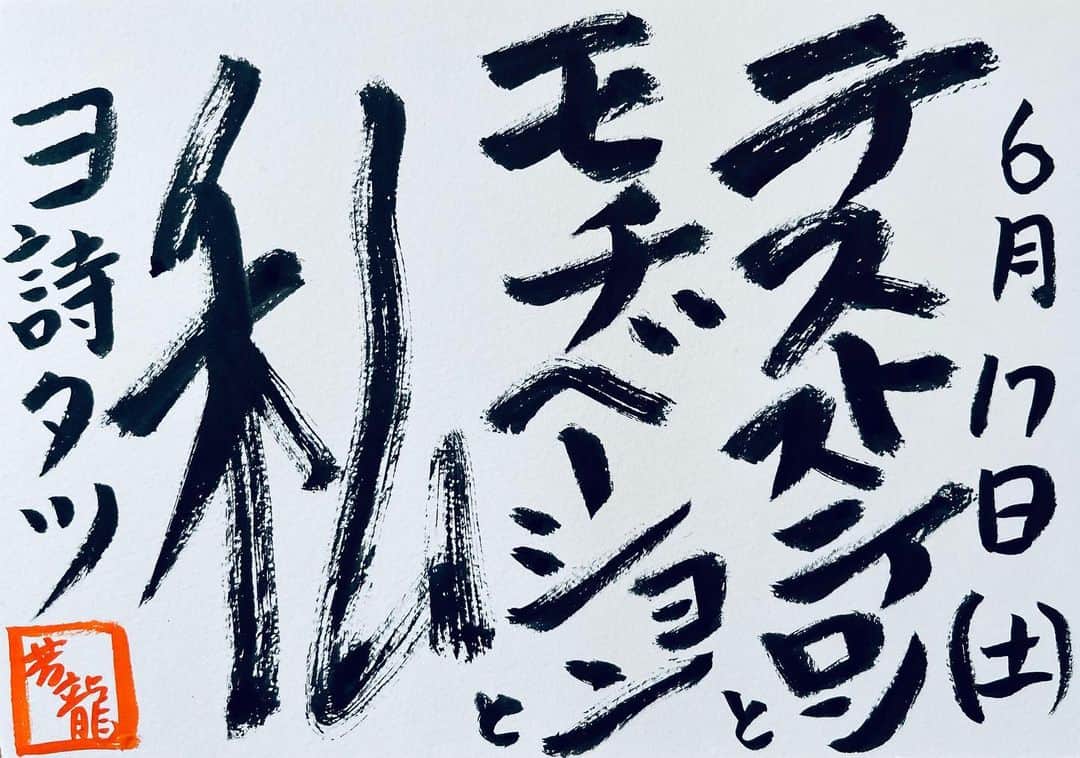 6月17日(土)
テストステロンと
モチベーションと
私
ヨ詩タツ
芳龍